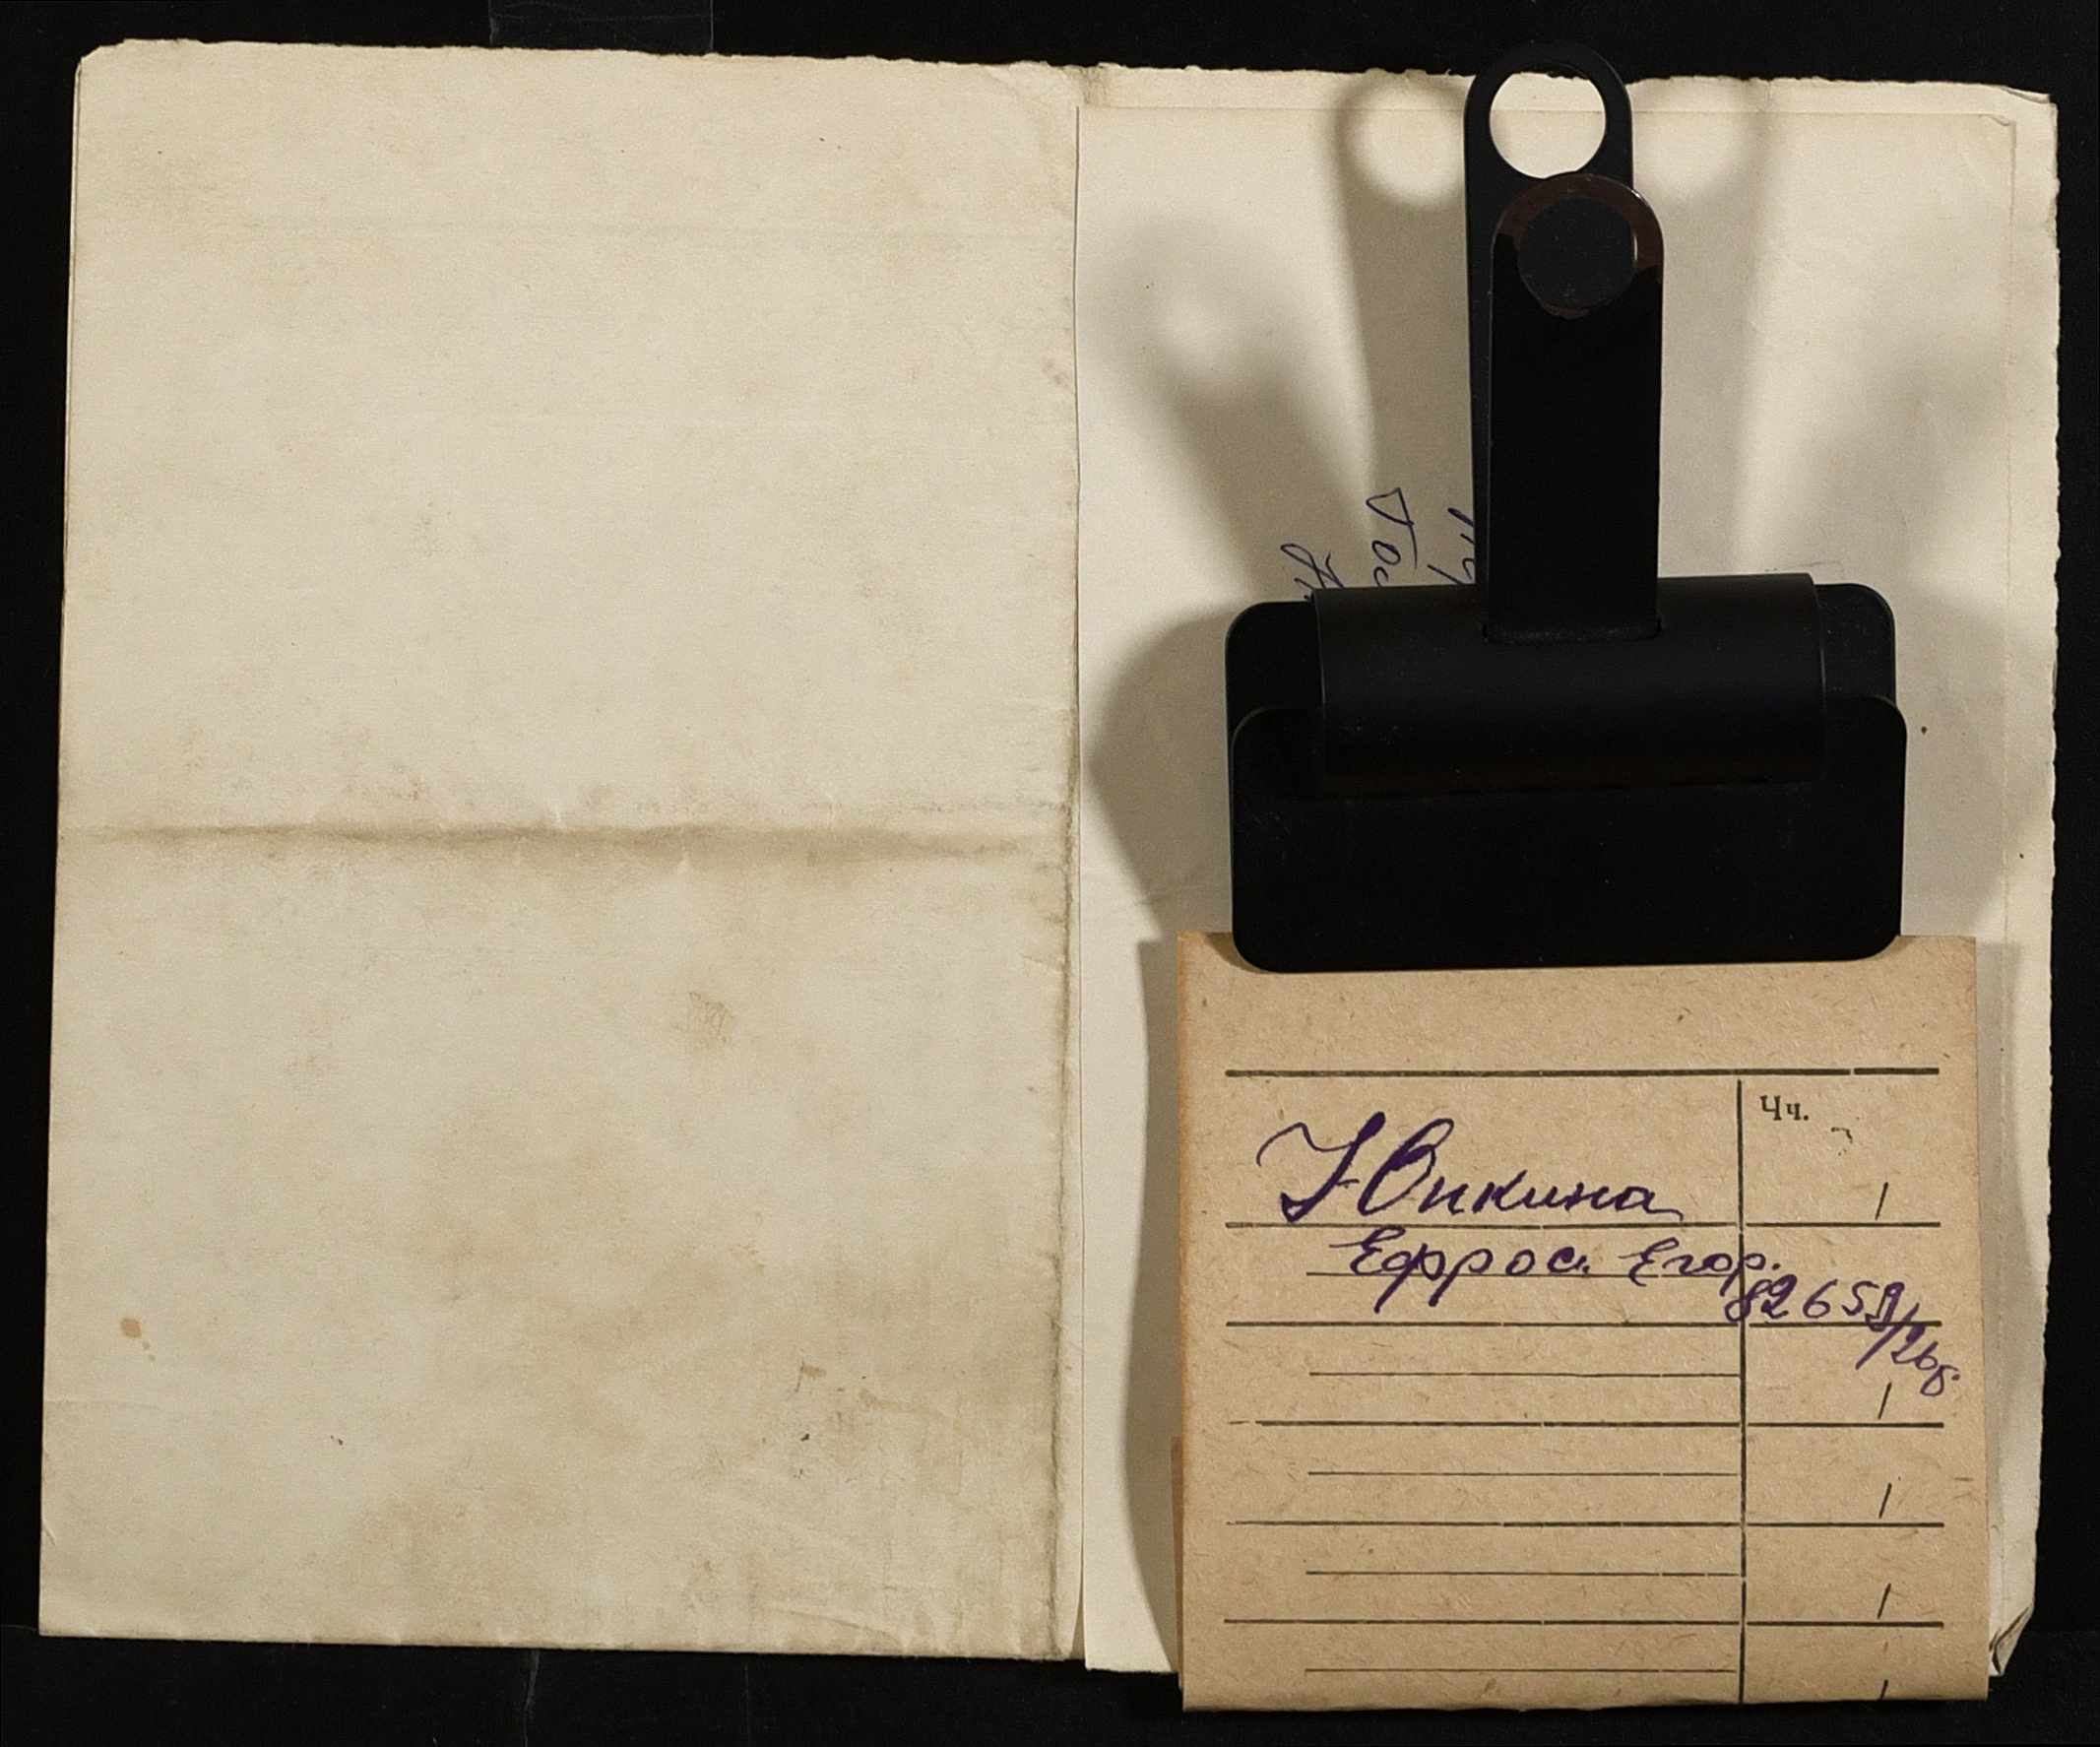 Чч.
Юпкина
Ефрос. Егор.
82659/26б.